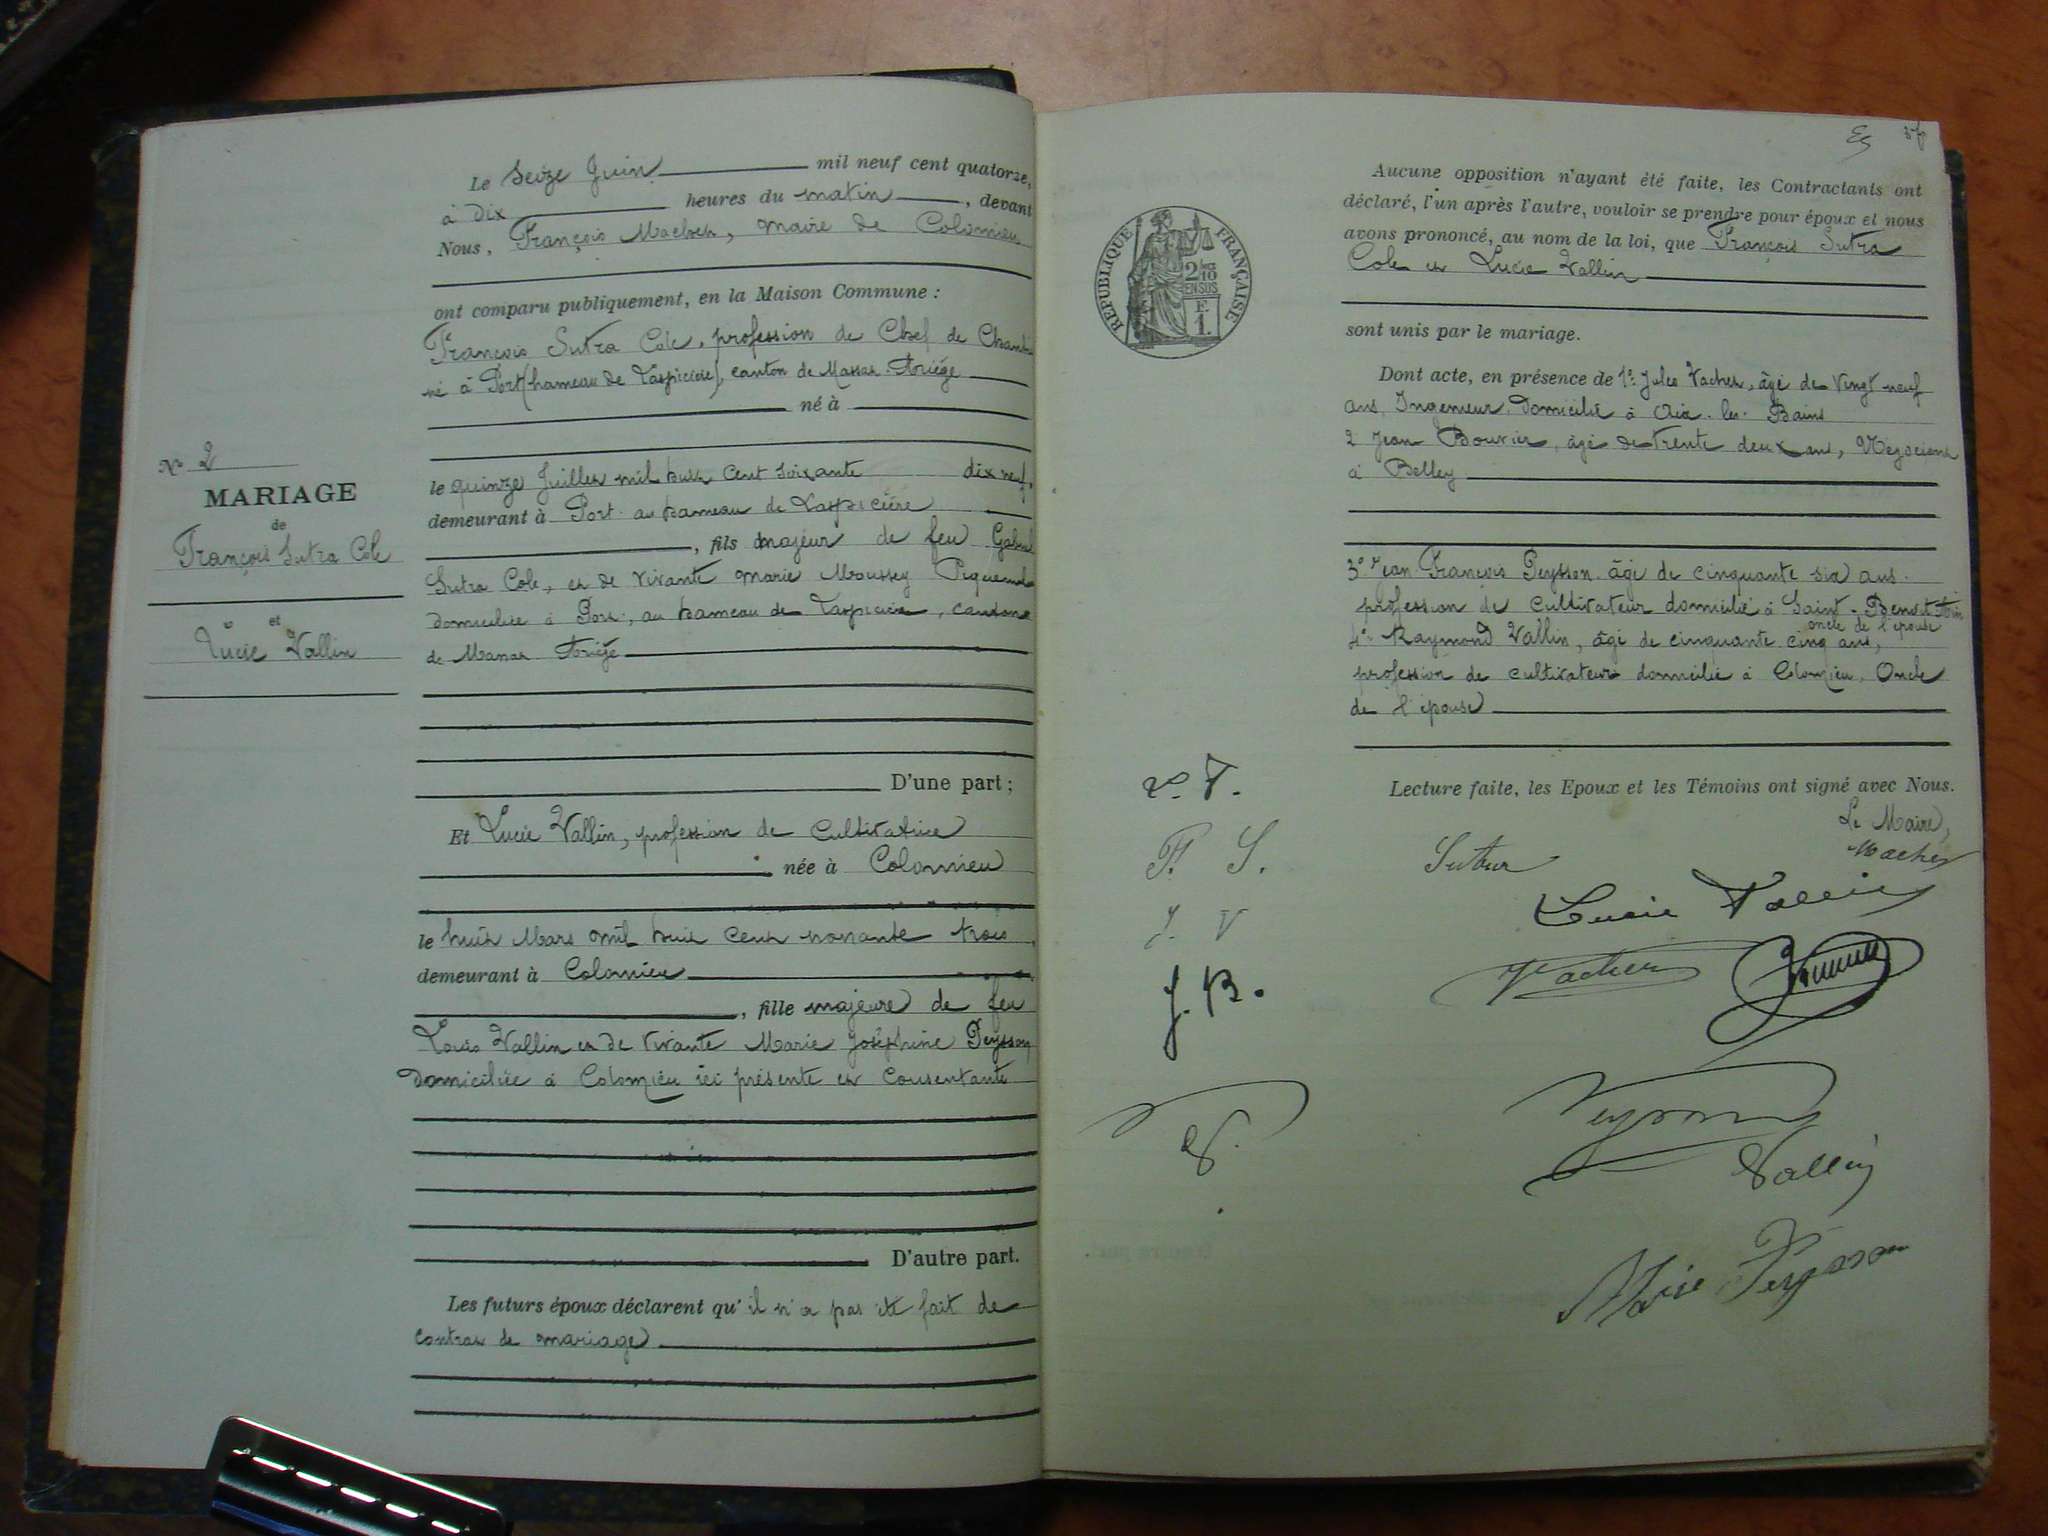 Le Seize Juin mil neuf cent quatorze,
à dix heures du matin, devant
Nous, François Macher, maire de Colomieu
ont comparu publiquement, en la Maison Commune :
François Sutra Cole, profession de Chef de Chantier
né à Port (hameau de Laspiciére), canton de Massat Ariége
né à
le quinze Juillet mil huit cent soixante dix neuf,
demeurant à Port au hameau de Laspiciére
, fils majeur de feu Gabriel
Sutra Cole, et de vivante Marie Moussey Piquemal
domiciliée à Port, au hameau de Laspiciére, canton
de Massat Ariége
D'une part ;
Et Lucie Vallin, profession de Cultivatrice
née à Colomieu
le huit Mars mil huit cent nonante trois,
demeurant à Colomieu
, fille majeure de feu
Louis Vallin et de vivante Marie Joséphine Peysson
domiciliée à Colomieu ici présente et consentante
D'autre part.
Les futurs époux déclarent qu'il n'a pas été fait de
contrat de mariage
No 2
MARIAGE
de
François Sutra Cole
et
Lucie Vallin
Aucune opposition n'ayant été faite, les Contractants ont
déclaré, l'un après l'autre, vouloir se prendre pour époux et nous
avons prononcé, au nom de la loi, que François Sutra
Cole et Lucie Vallin
sont unis par le mariage.
Dont acte, en présence de 1° Jules Vacher, âgé de vingt neuf
ans, Ingenieur, domicilié à Aix-les-Bains
2 Jean Bouvier, âgé de trente deux ans, Negociant
à Belley
3° Jean François Peysson âgé de cinquante six ans.
profession de cultivateur domicilié à Saint-Benoit Ain
oncle de l'epouse
4° Raymond Vallin, âgé de cinquante cinq ans,
profession de cultivateur domicilié à Colomieu, Oncle
de l'épouse
Lecture faite, les Epoux et les Témoins ont signé avec Nous.
Le Maire,
Macher
RÉPUBLIQUE FRANÇAISE
2/10
EN SUS
F.
1.
L. V.
F. S.
J. V
J. B.
V.
Lucie Vallin
Vacher
Peysson
Vallin
Marie Peysson